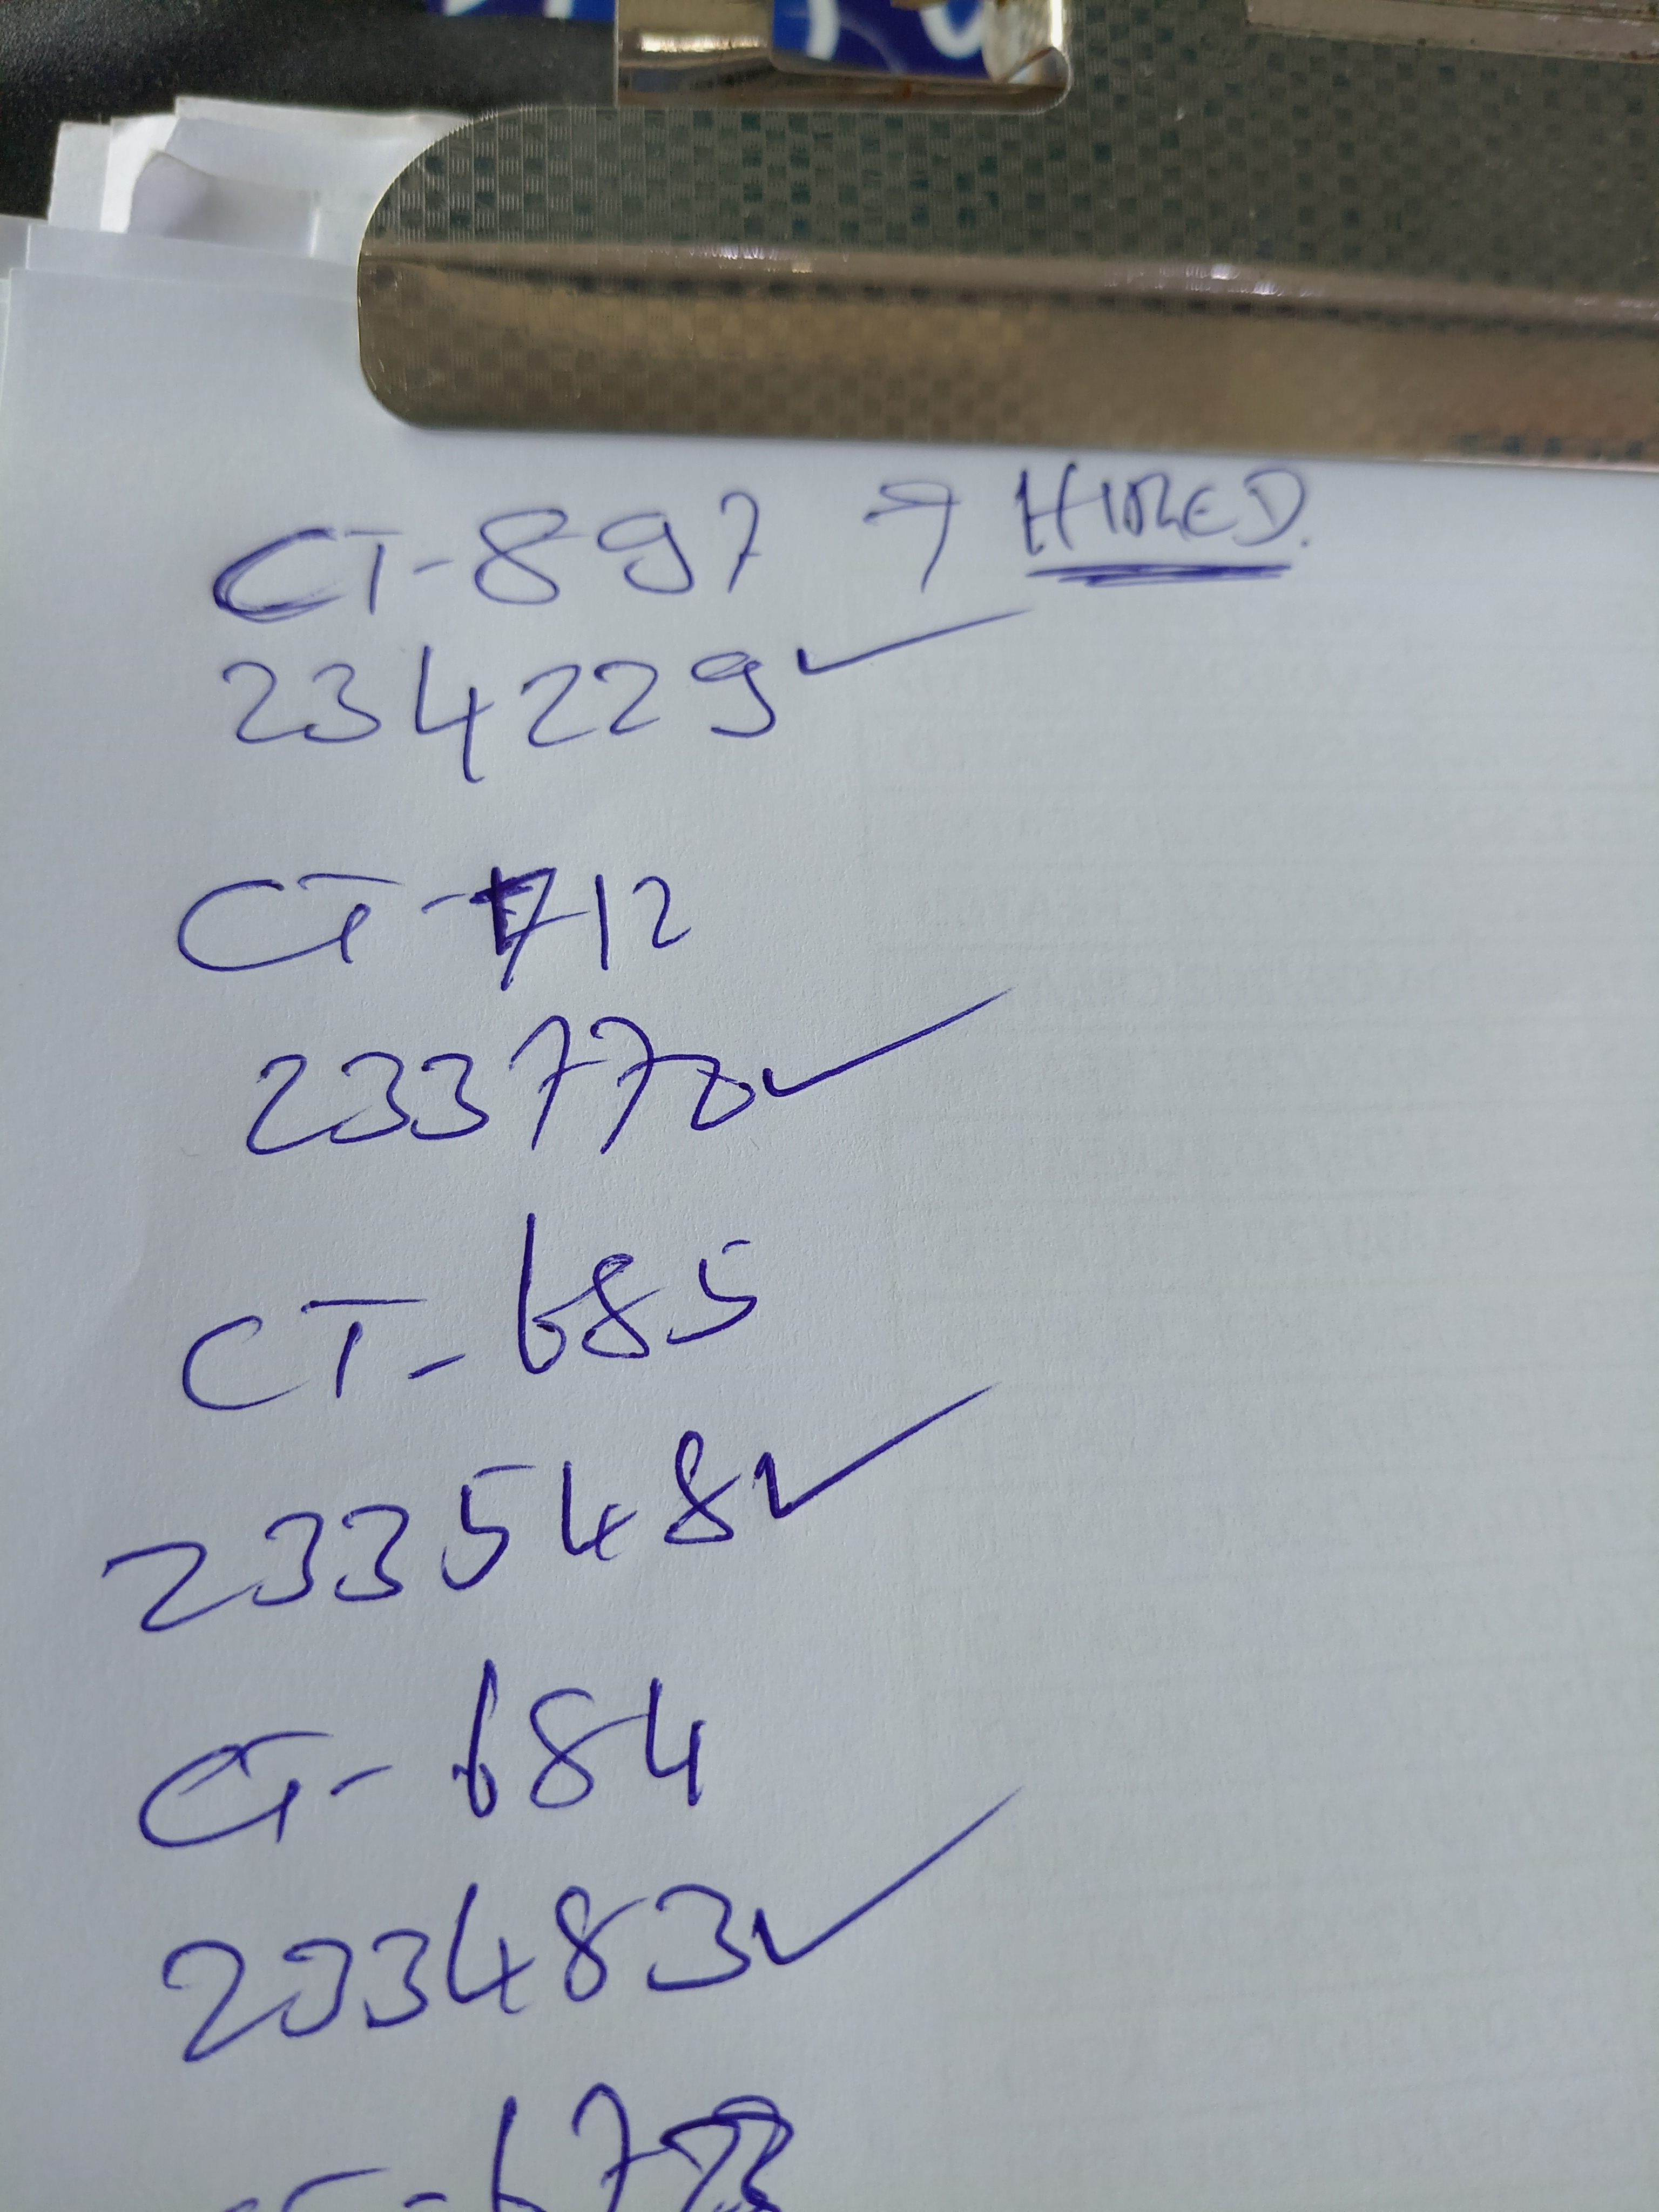 CT-897 → HIRED.
234229 ✓
CT-712
233770 ✓
CT-685
233548 ✓
CT-684
233483 ✓